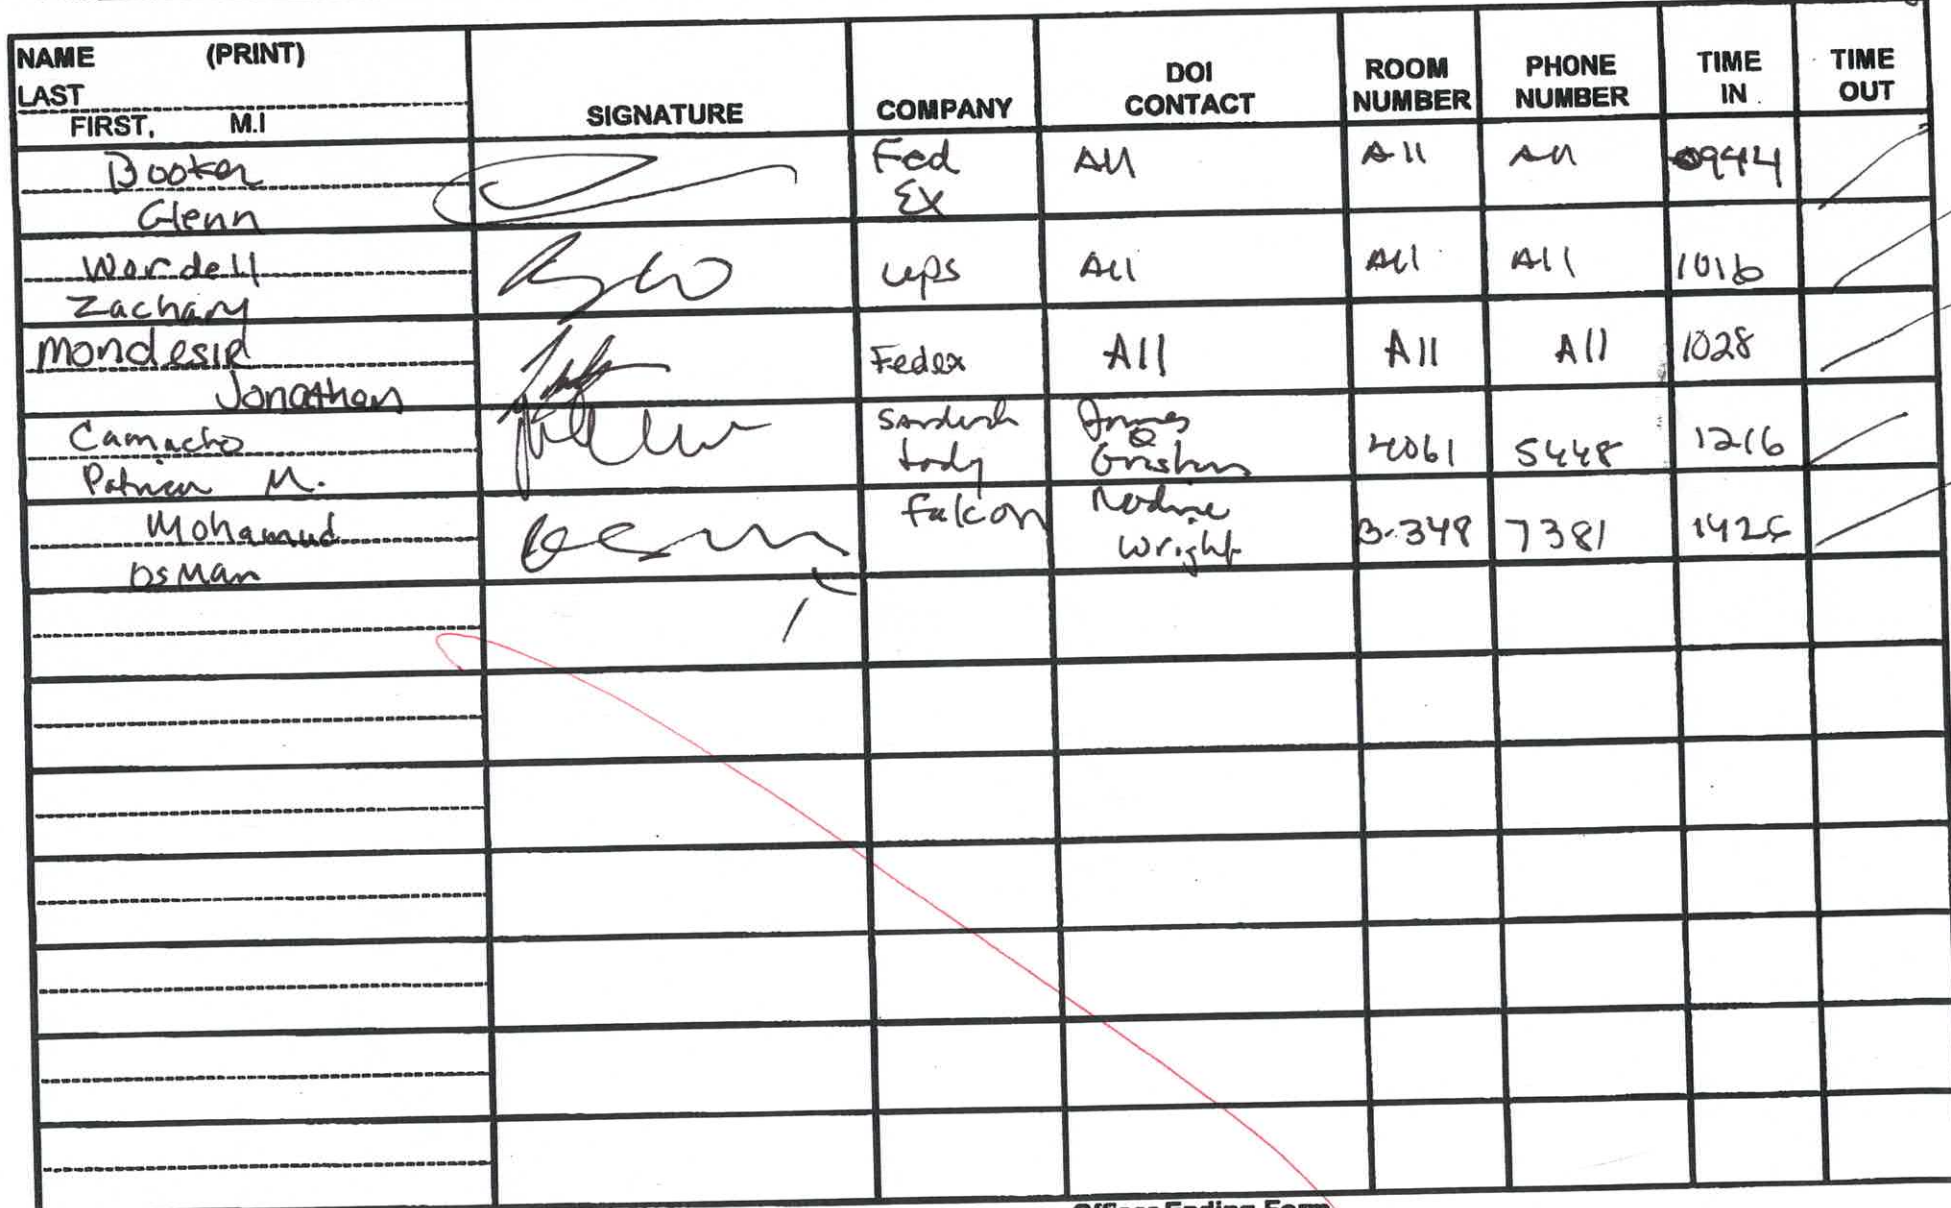 NAME (PRINT)
LAST
FIRST, M.I
SIGNATURE
COMPANY
DOI
CONTACT
ROOM
NUMBER
PHONE
NUMBER
TIME
IN
TIME
OUT
Booker
Glenn
Fed
Ex
All
All
All
0944
Wardell
Zachary
ups
All
All
All
1016
Mondesir
Jonathan
Fedex
All
All
All
1028
Camacho
Patrica M.
Sandwich
Lady
James
5448
1216
Mohamud
Osman
Falcon
Nadine
Wright
B-348
7381